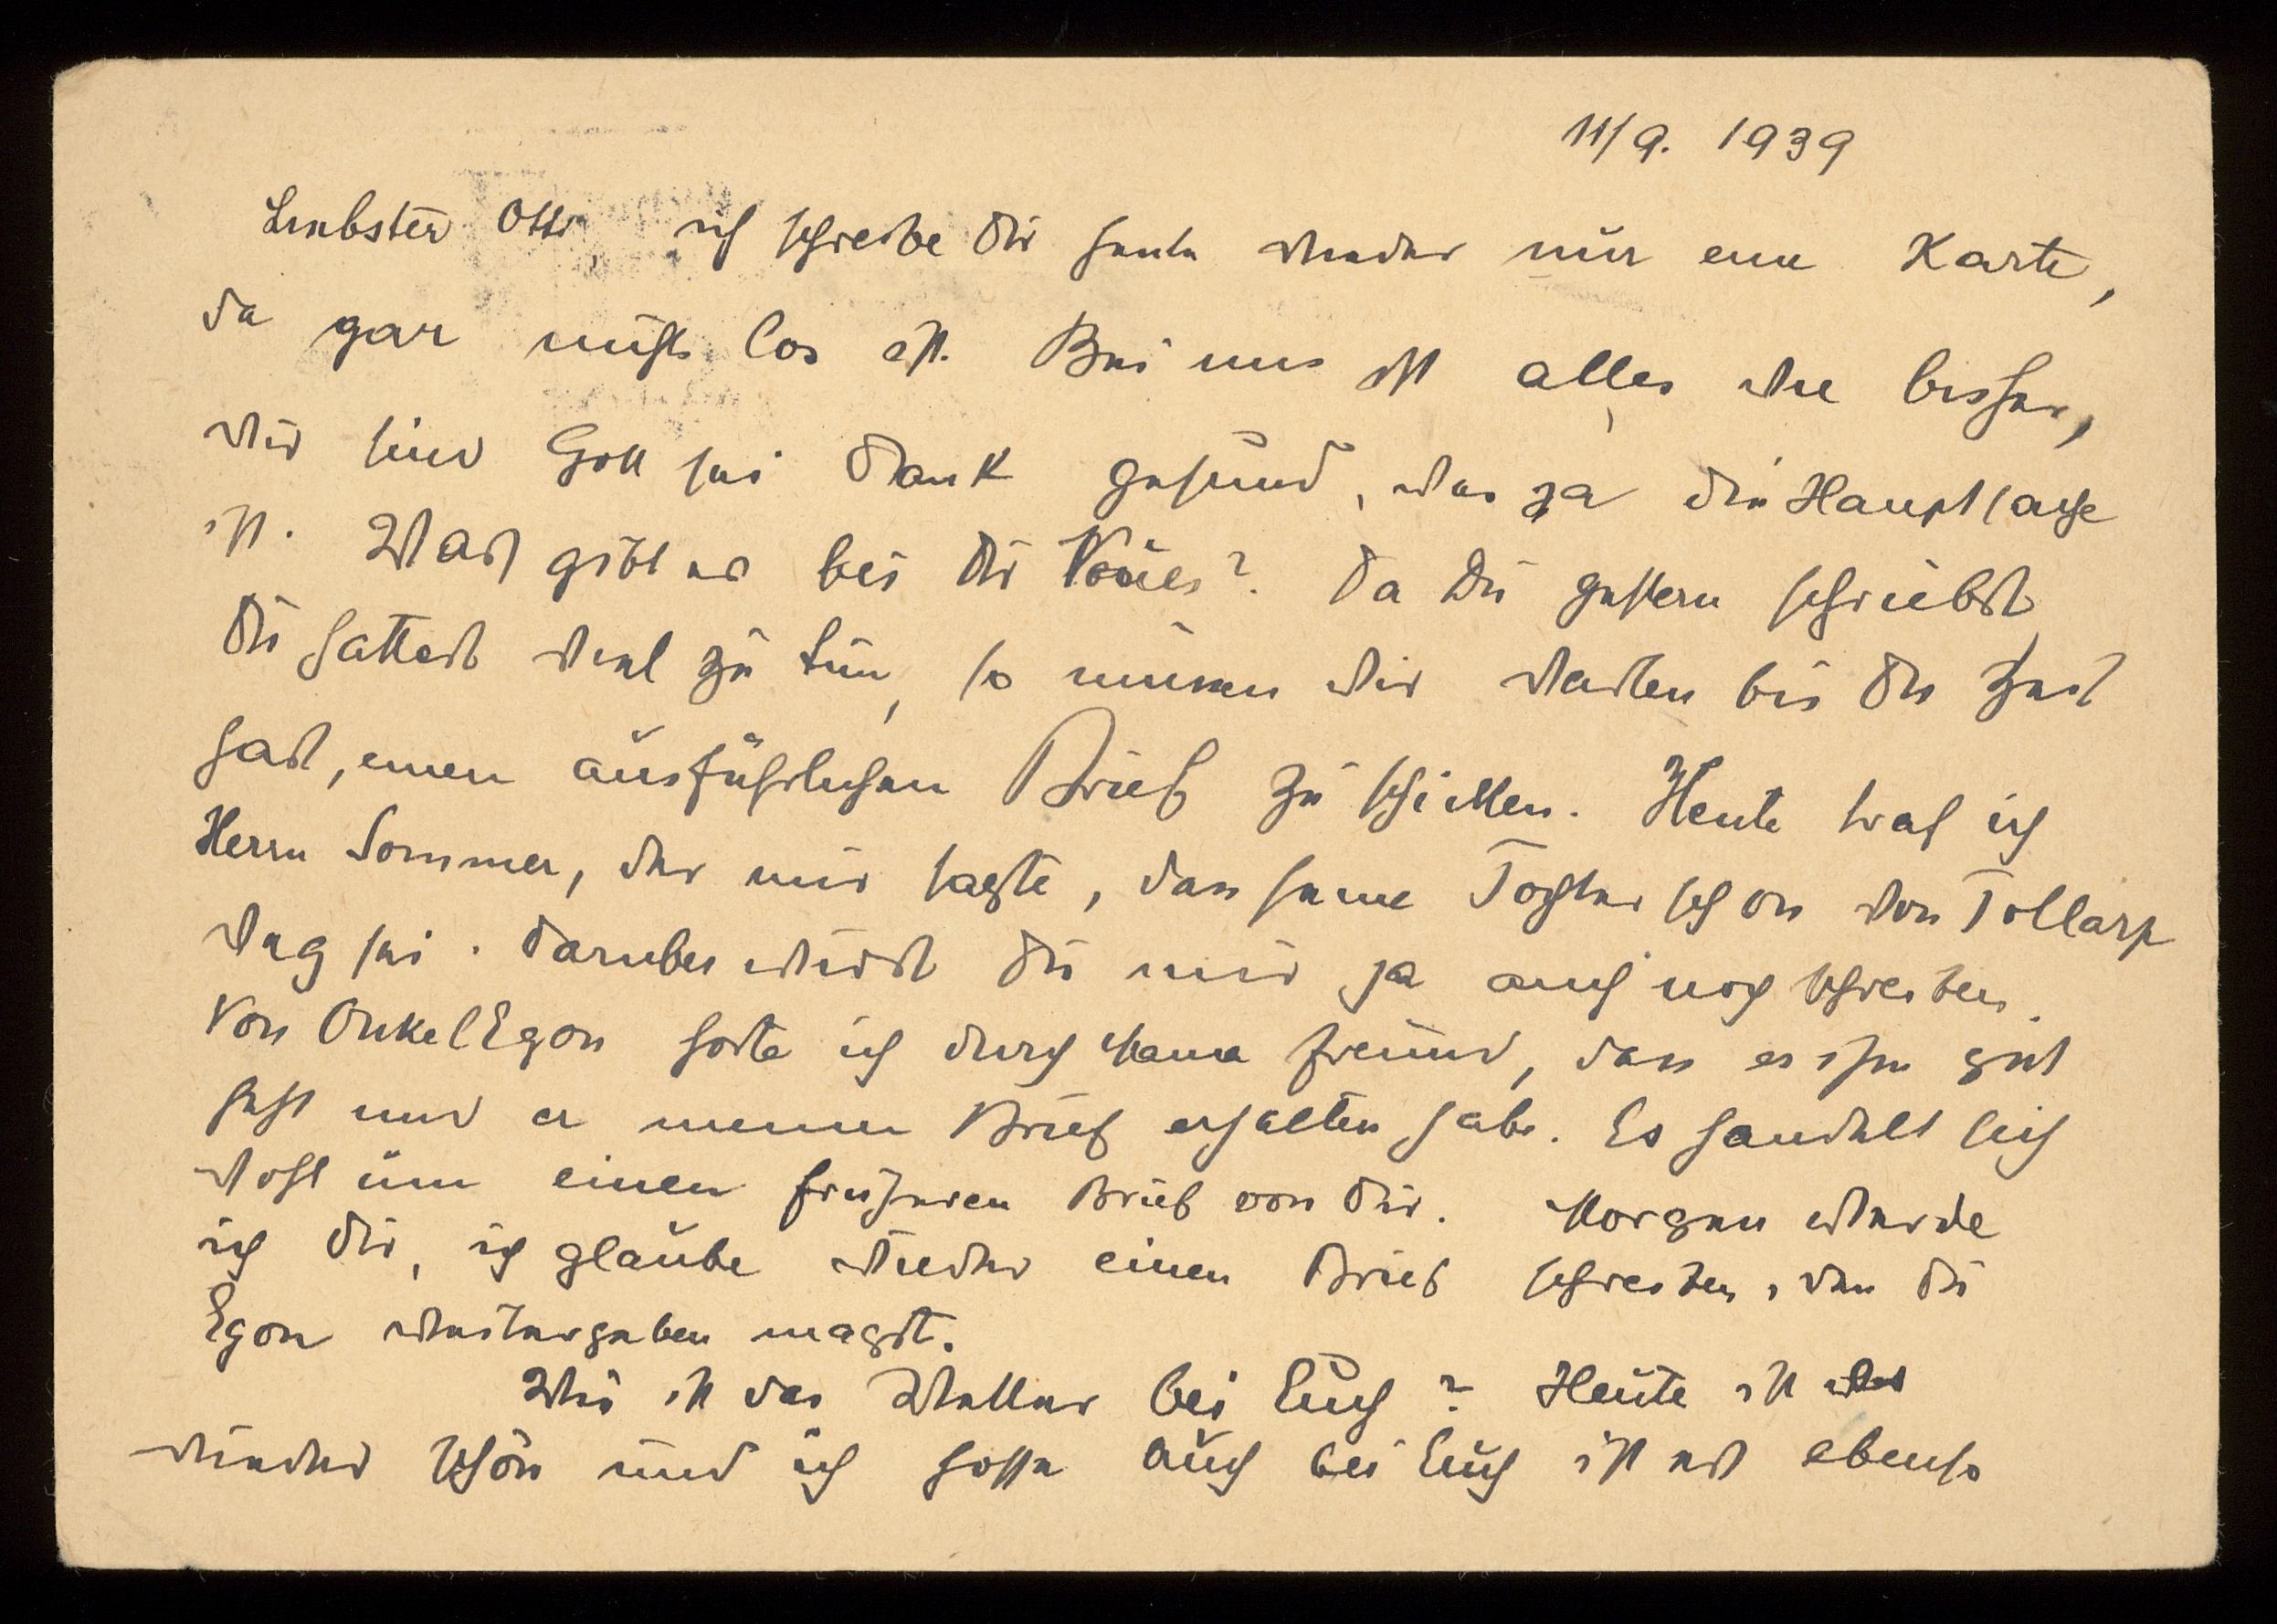 11/9. 1939
Liebster Otto, ich schreibe Dir heute wieder nur eine Karte,
da gar nichts los ist. Bei uns ist alles wie bisher,
wir sind Gott sei Dank gesund, was ja die Hauptsache
ist. Was gibt es bei Dir Neues? Da Du gestern schriebst
Du hattest viel zu tun, so müssen wir warten bis Du Zeit
hast, einen ausführlichen Brief zu schicken. Heute traf ich
Herrn Sommer, der mir sagte, dass seine Tochter schon von Tollarp
weg sei. Darüber wirst Du mir ja auch noch schreiben.
Von Onkel Egon hörte ich durch Mama Freund, dass es ihm gut
geht und er meinen Brief erhalten habe. Es handelt sich
wohl um einen früheren Brief von Dir. Morgen werde
ich Dir, ich glaube wieder einen Brief schreiben, den Du
Egon weitergeben magst.
Wie ist das Wetter bei Euch? Heute ist es
wieder schön und ich hoffe auch bei Euch ist es ebenso